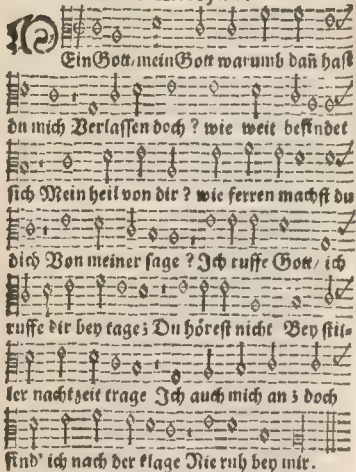 MEin Gott/ mein Gott warumb dañ hast
du mich Verlassen doch ? wie weit befindet
sich Mein heil von dir ? wie ferren machst du
dich Von meiner sage ? Jch ruffe Gott/ ich
ruffe dir bey tage; Du hörest nicht Bey stil-
ler nachtzeit trage Jch auch mich an; doch
find' ich nach der klage Nie ruh bey mir.